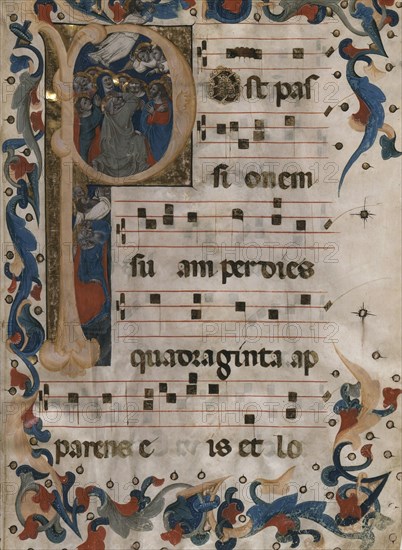 Post pas
si onem
su am per dies
quadraginta ap
parens e is et lo